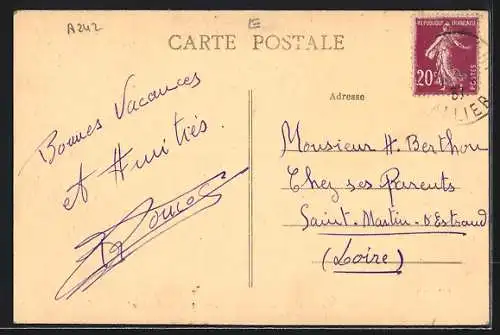 A242
E
CARTE POSTALE
REPUBLIQUE FRANÇAISE
20c
POSTES
ALLIER
Adresse
Bonnes Vacances
et Amitiés.
Monsieur H. Berthon
Chez ses Parents
Saint-Martin-d'Estraud
(Loire)